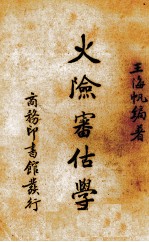 王海帆編著
火險審估學
商務印書館發行